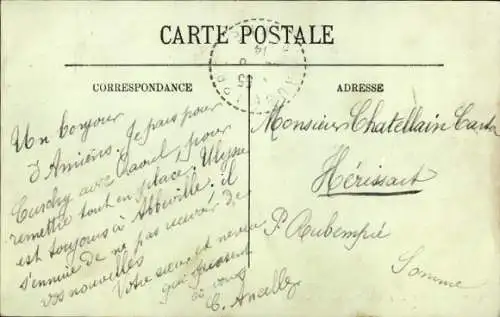 CARTE POSTALE
CORRESPONDANCE
ADRESSE
Un bonjour
d'Amiens. Je pars pour
Curchy avec Raoul, pour
remettre tout en place. Ulysse
est toujours à Abbeville; il
s'ennuie de ne pas recevoir de
vos nouvelles
Votre sœur et neveu
qui pensent
à vous
C. Ancelle
Monsieur Chatellain
Hérissart
Pr Rubempré
Somme